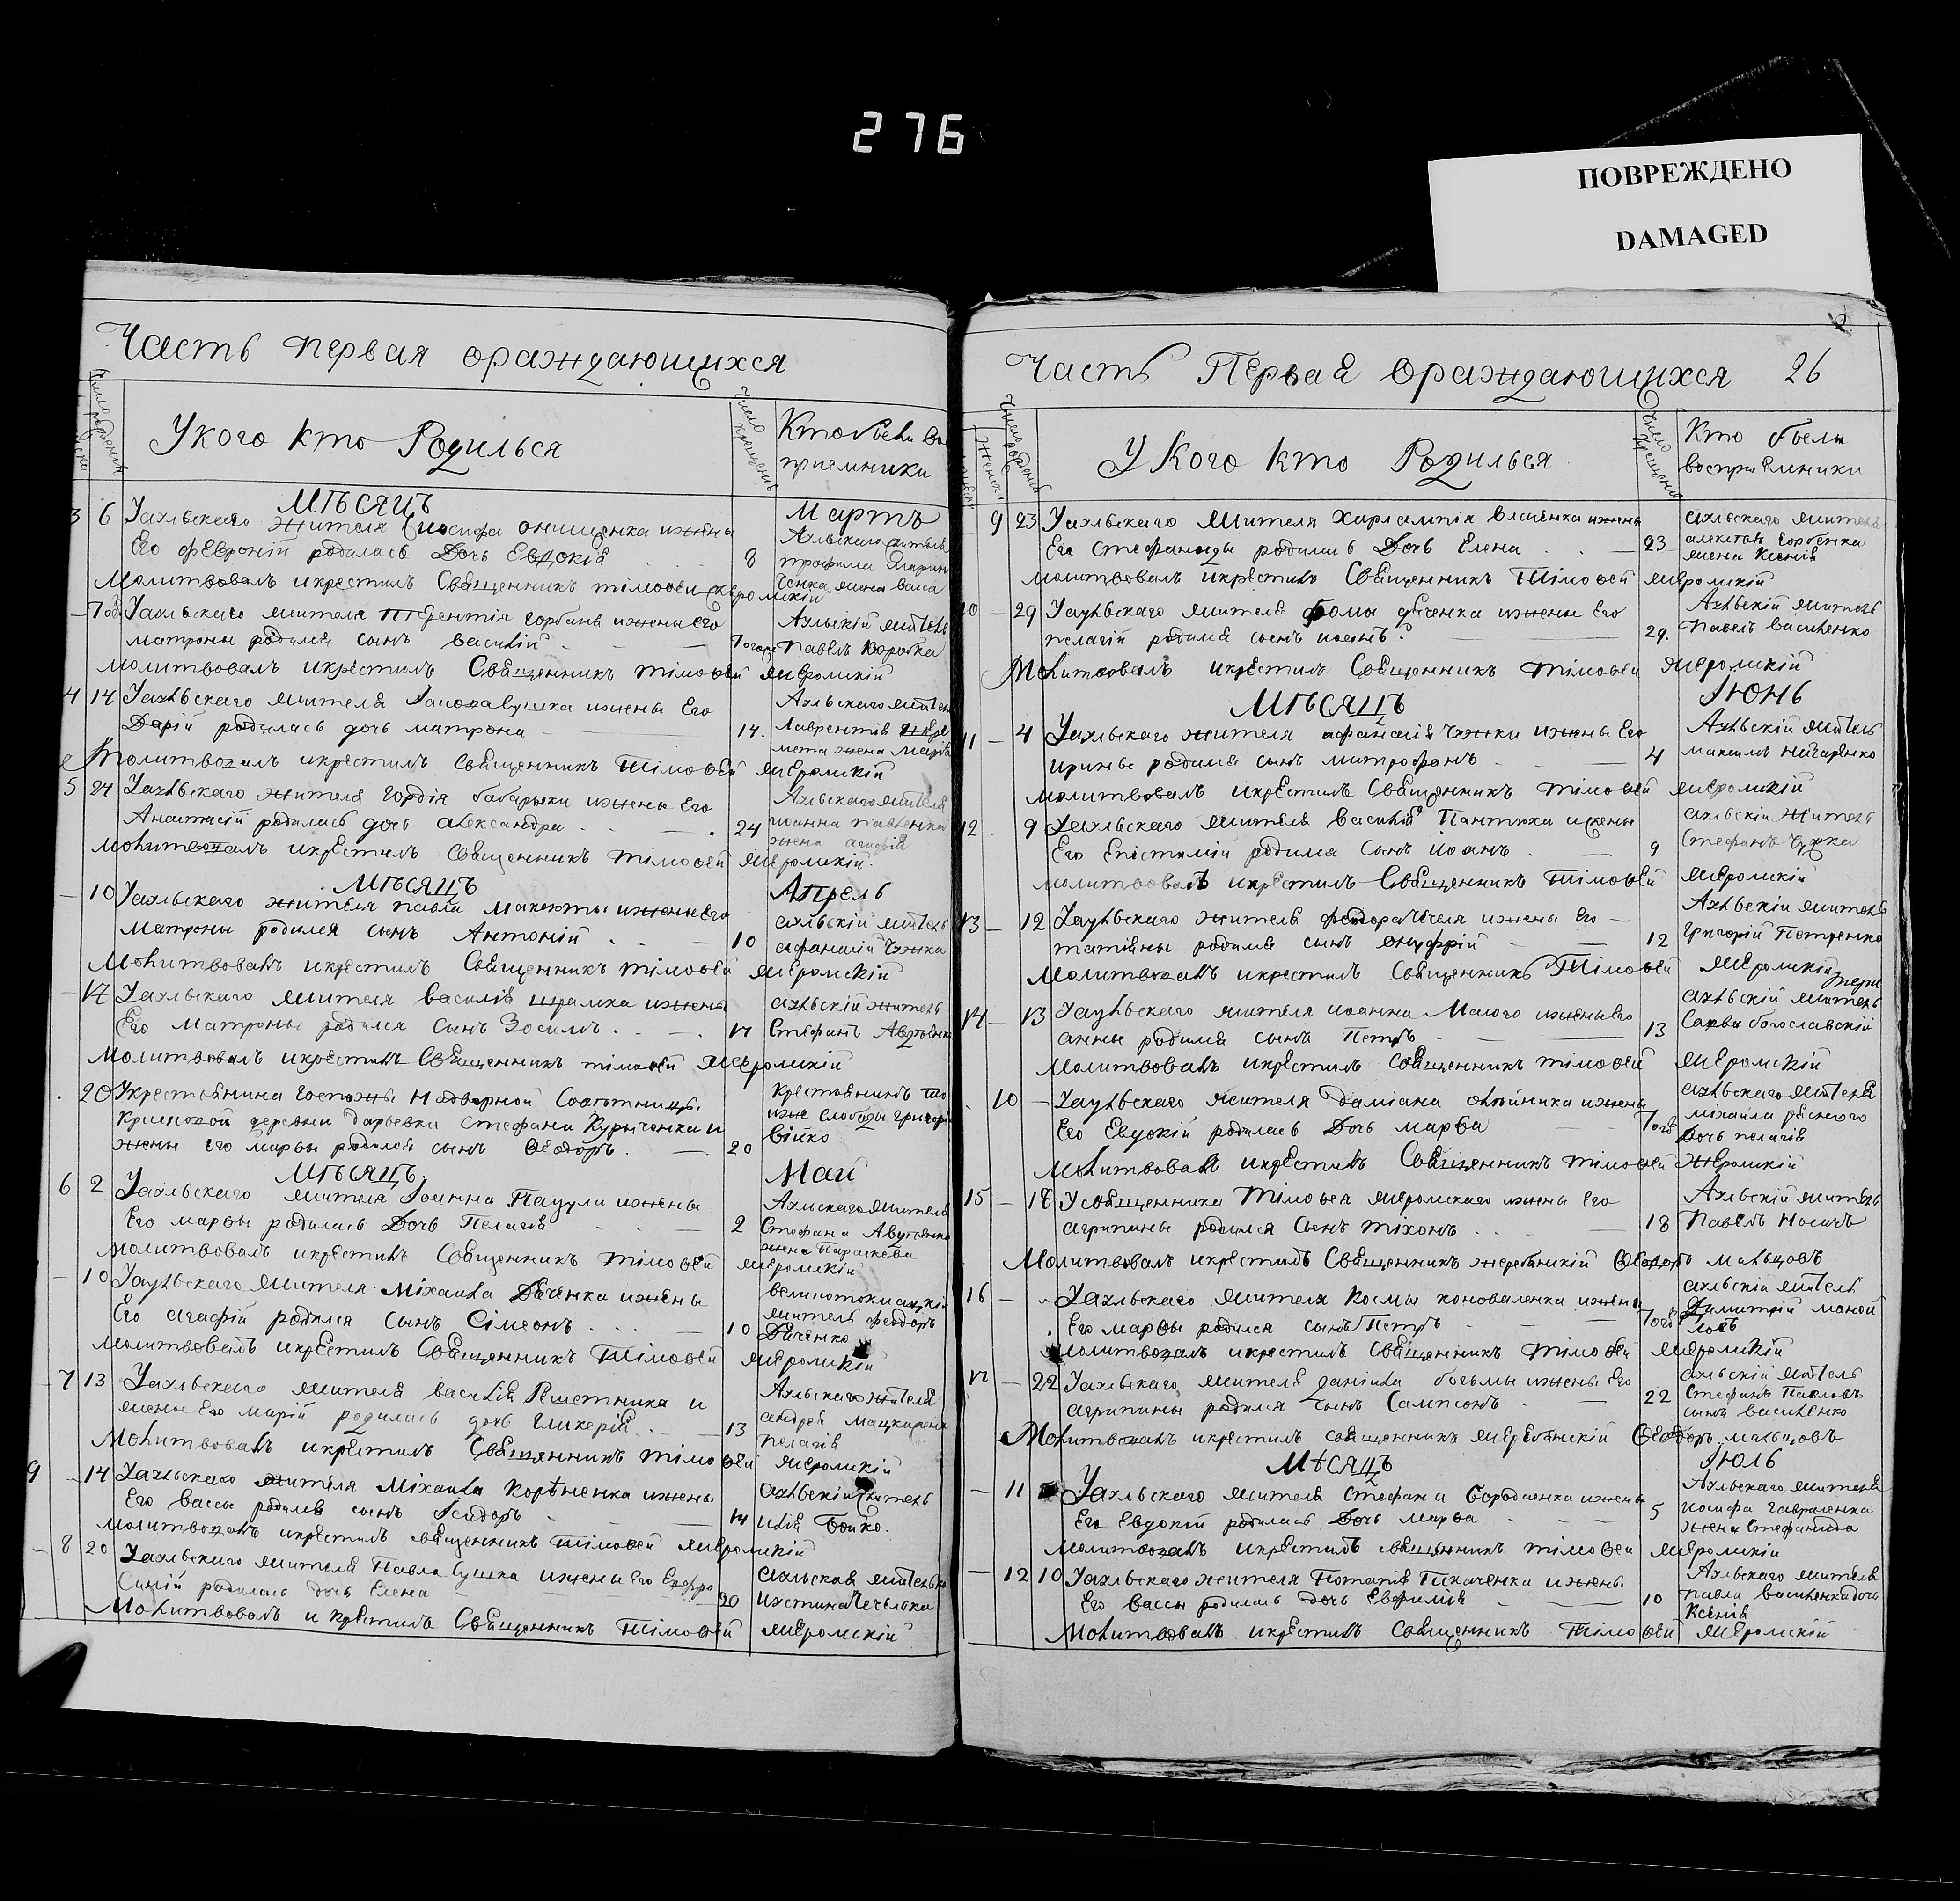 276
ПОВРЕЖДЕНО
DAMAGED
Часть первая ораждающихся
Число рождения
Укого кто Родилься
Число крещения
Кто были вос
приемники
Мѣсяцъ
Мартъ
3 6 Уахльскаго жителя Іиосифа онищенка ижены
Его февроній родилась Дочь Евдокія 8
Ахльскаго житель
трофима
жена васса
Молитвовалъ икрестилъ Священникъ тімоѳеи жеромскій
7 Уахльскаго жителя Терентія горбань ижены его
матроны родился сынъ василій
Ахльскій житель
Павелъ Коробка
молитвовалъ икрестилъ Священникъ тімоѳей жеромскій
4 14 Уахльскаго жителя ижены Его
Дарій родилась дочь матрона 14.
Ахльскаго жителя
Лаврентія
жена марія
Молитвовалъ икрестилъ священникъ Тімоѳей жеромскій
5 24 Уахльскаго жителя гордія бабарыки ижены Его
Анастасій родилась дочь александра 24
Ахльскаго жителя
иоанна павленка
жена агафія
молитвовалъ икрестилъ священникъ тімоѳей жеромскій.
Мѣсяцъ
Апрель
10 Уахльскаго жителя павла макоты ижены его
матроны родился сынъ Антоній 10
ахльскій житель
афанасій чижка
Молитвовалъ икрестилъ Священникъ тімоѳей жеромскій
17 Уахльскаго жителя василія шрамка ижены
Его Матроны родился сынъ Зосимъ. 17
ахльскій житель
Стефанъ
Молитвовалъ икрестилъ Священникъ тімоѳей жеромскій
20 Укрестьянина Госпожи Надворной Совѣтницы
деревни Дарьевки Стефана Курыченка и
жены его марѳы родился сынъ Ѳеодоръ. 20
Крестьянинъ
слободы григорій
війко
Мѣсяцъ
Май
6 2 Уахльскаго жителя Іоанна Пацули ижены
Его марѳы родилась Дочь Пелагія 2
Ахльскаго жителя
Стефана
жена Параскева
молитвовалъ икрестилъ Священникъ тімоѳей жеромскій
10 Уахльскаго жителя Міхаила Дяченка ижены
Его агафій родился сынъ Сімеонъ 10
великотокмацкій
житель ѳеодоръ
Дяченко
молитвовалъ икрестилъ Священникъ Тімоѳей жеромскій
7 13 Уахльскаго жителя василія Решетника и
жены Его марій родилась дочь гликерія 13
Ахльскаго жителя
андрей
пелагія
молитвовалъ икрестилъ Священникъ тімоѳей жеромскій
9 14 Уахльскаго жителя Міхаила Корѣненка ижены
Его вассы родился сынъ Ісидоръ 14
ахльскій житель
илія Бойко.
молитвовалъ икрестилъ священникъ тімоѳей жеромскій
8 20 Уахльскаго жителя Павла Сушка ижены Его Ехфро
синій родилась дочь Елена 20
ахльская
иустина
Молитвовалъ и крестилъ Священникъ Тімоѳей жеромскій
Часть Перьвая ораждающихся 26
Число рождения
У Кого кто Родилься
Число крещения
Кто были
восприемники
9 23 Уахльскаго жителя харлампія власенка ижены
Его стефаниды родилась Дочь Елена 23
ахльскаго жителя
горбенка
жена Ксенія
молитвовалъ икрестилъ Священникъ Тімоѳей жеромскій
10 29 Уахльскаго жителя Ѳомы дяченка ижены Его
пелагій родился сынъ иоанъ. 29.
Ахльскій житель
Павелъ василенко
Молитвовалъ икрестилъ Священникъ тімоѳей жеромскій
Мѣсяцъ
Іюнь
11 4 Уахльскаго жителя афанасія чижки ижены Его
ирины родился сынъ митрофанъ 4
Ахльскій житель
максимъ
молитвовалъ икрестилъ Священникъ тімоѳей жеромскій
12. 9 Уахльскаго жителя василій Пантюха ижены
Его Епистимій родился сынъ иоанъ 9
ахльскій житель
Стефанъ
молитвовалъ икрестилъ Священникъ Тімоѳей жеромскій
13 12 Уахльскаго жителя феодора ижены Его
татіяны родился сынъ онуфрій 12
Ахльскій житель
григорій Петренко
Молитвовалъ икрестилъ Священникъ Тімоѳей жеромскій
14 13 Уахльскаго жителя иоанна Малого ижены Его
анны родился сынъ Петръ 13
ахльскій житель
Савва богославскій
молитвовалъ икрестилъ священникъ тімоѳей жеромскій
10 Уахльскаго жителя Даміана олѣйника ижены
Его Евдокій родилась Дочь марѳа Того
ахльскаго жителя
міхаила
Дочь пелагія
молитвовалъ икрестилъ Священникъ тімоѳей жеромскій
15 18 Усвященника Тімоѳея жеромскаго ижены Его
агрипины родился сынъ тіхонъ 18
Ахльскій житель
Павелъ Носачъ
Молитвовалъ икрестилъ Священникъ жеребянскій Ѳеодоръ мальцовъ
16 Уахльскаго жителя Космы коноваленка ижены
Его марѳы родился сынъ Петръ Того
ахльскій житель
Димитрій
молитвовалъ икрестилъ Священникъ тімоѳей жеромскій
17 22 Уахльскаго жителя даніила ижены Его
агрипины родился сынъ Сампсонъ 22
ахльскій житель
Стефанъ Павловъ
сынъ василенко
Молитвовалъ икрестилъ священникъ жеребянскій Ѳеодоръ мальцовъ
Мѣсяцъ
Іюль
11 Уахльскаго жителя Стефана бородаенка ижены
Его Евдокій родилась Дочь марѳа 5
Ахльскаго жителя
иосифа гавриленка
жена Стефанида
молитвовалъ икрестилъ священникъ тімоѳеи жеромскій
12 10 Уахльскаго жителя Потапія Ткаченка ижены
Его вассы родилась дочь Евфимія 10
Ахльскаго жителя
павла василенка дочь
Ксенія
молитвовалъ икрестилъ священникъ Тімоѳеи жеромскій